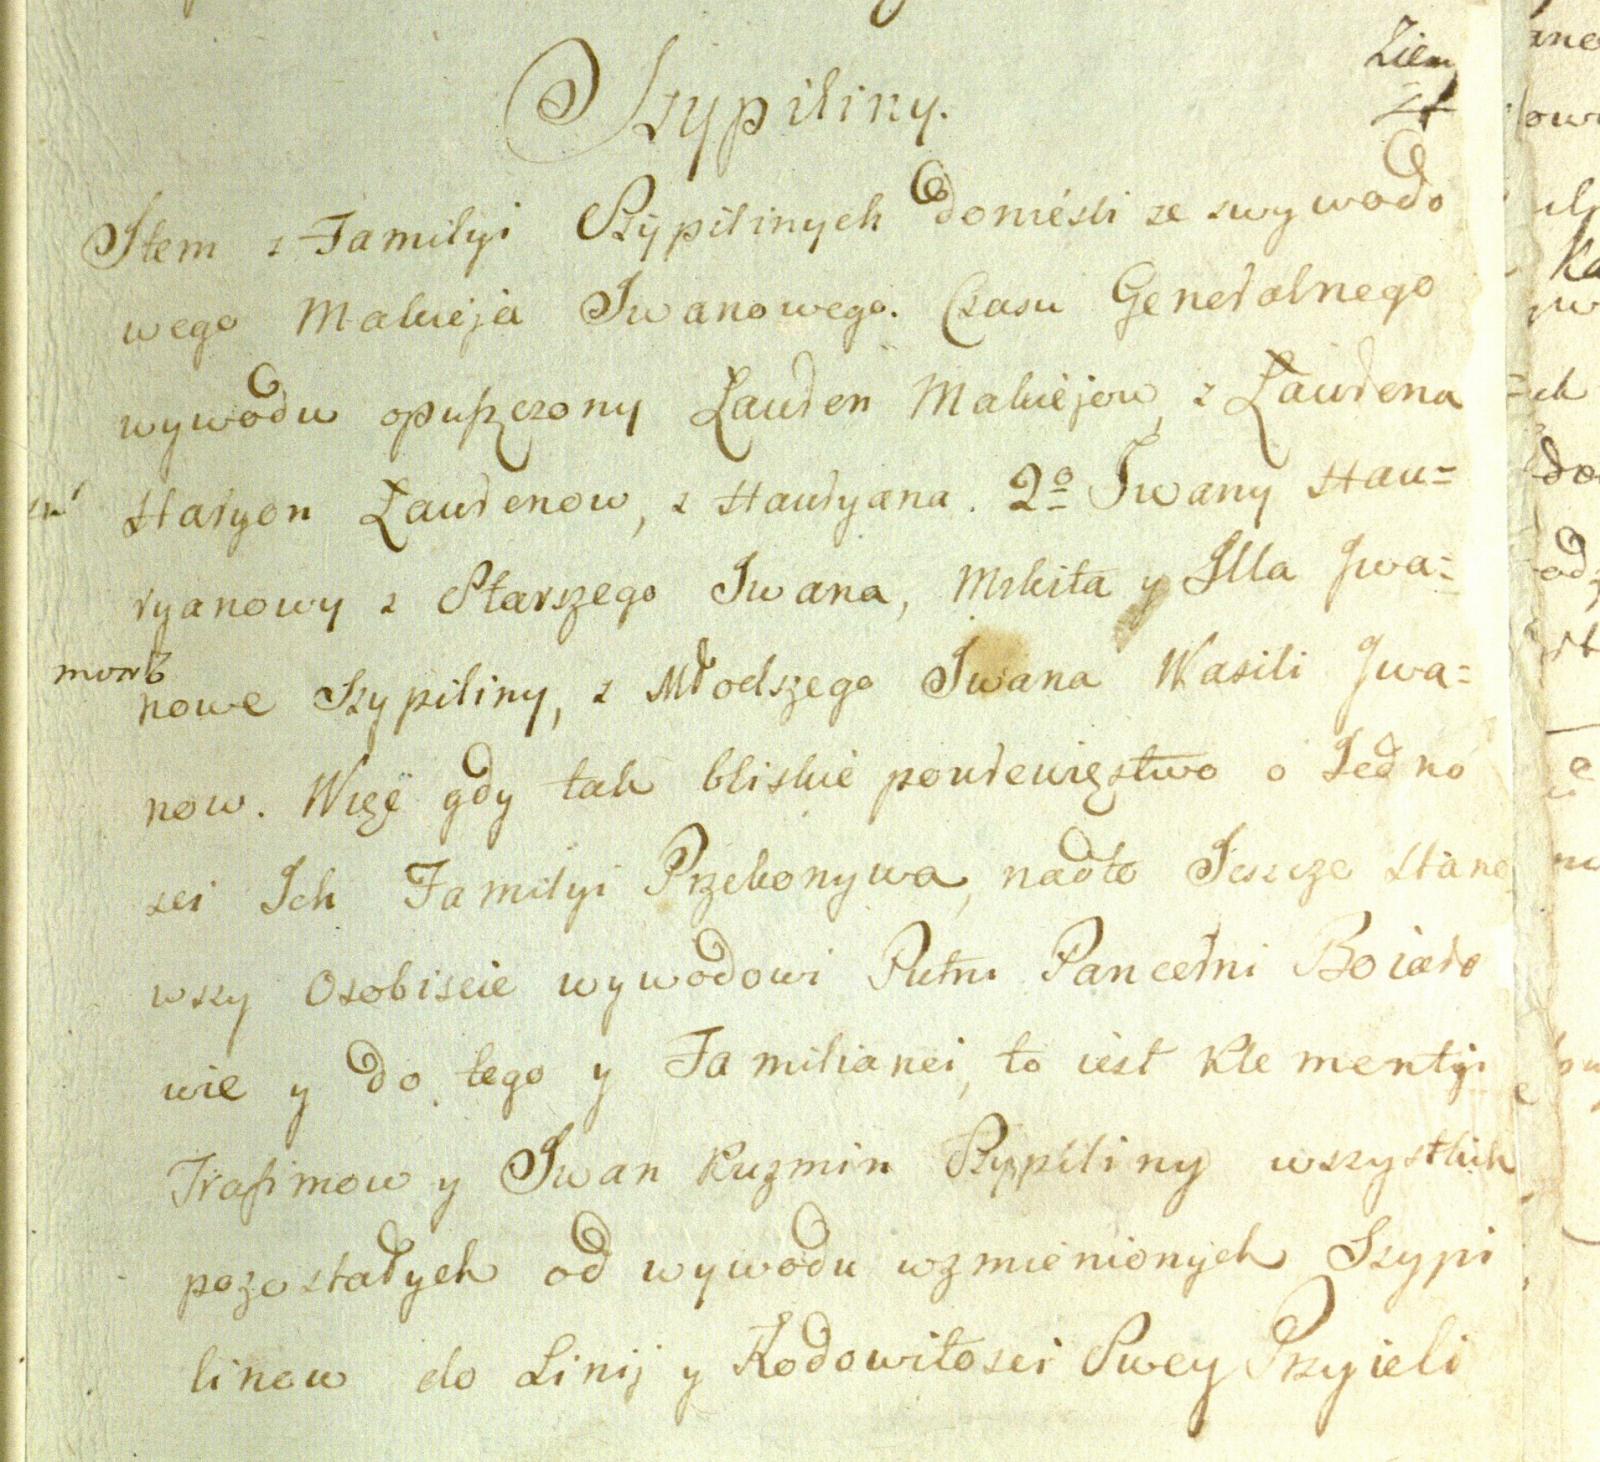 Szypiliny.
Ziem
Item z Familyi Szypilinych donieśli ze zwywodo
wego Makieja Iwanowego. Czasu Generalnego
wywodu opuszczony Łauren Makiejow, z Łaurena
Haryon Łaurenow, z Hauryana. 2o Iwany Hau=
ryanowy z Starszego Iwana, Mikita y Illa Iwa=
nowe Szypiliny, z Młodszego Iwana Wasili Iwa=
now. Więc gdy tak bliskie pokrewięstwo o Iedno
sci Ich Familyi Przekonywa, nadto Ieszcze stano
wszy Osobiscie wywodowi Putni Pancerni Boiaro
wie y do tego y Familianci, to iest Klementyi
Trafimow y Iwan Kuzmin Szypiliny wszystkich
pozostałych od wywodu wzmienionych Szypi
linow do Linij y Rodowitosci Swey Przyieli